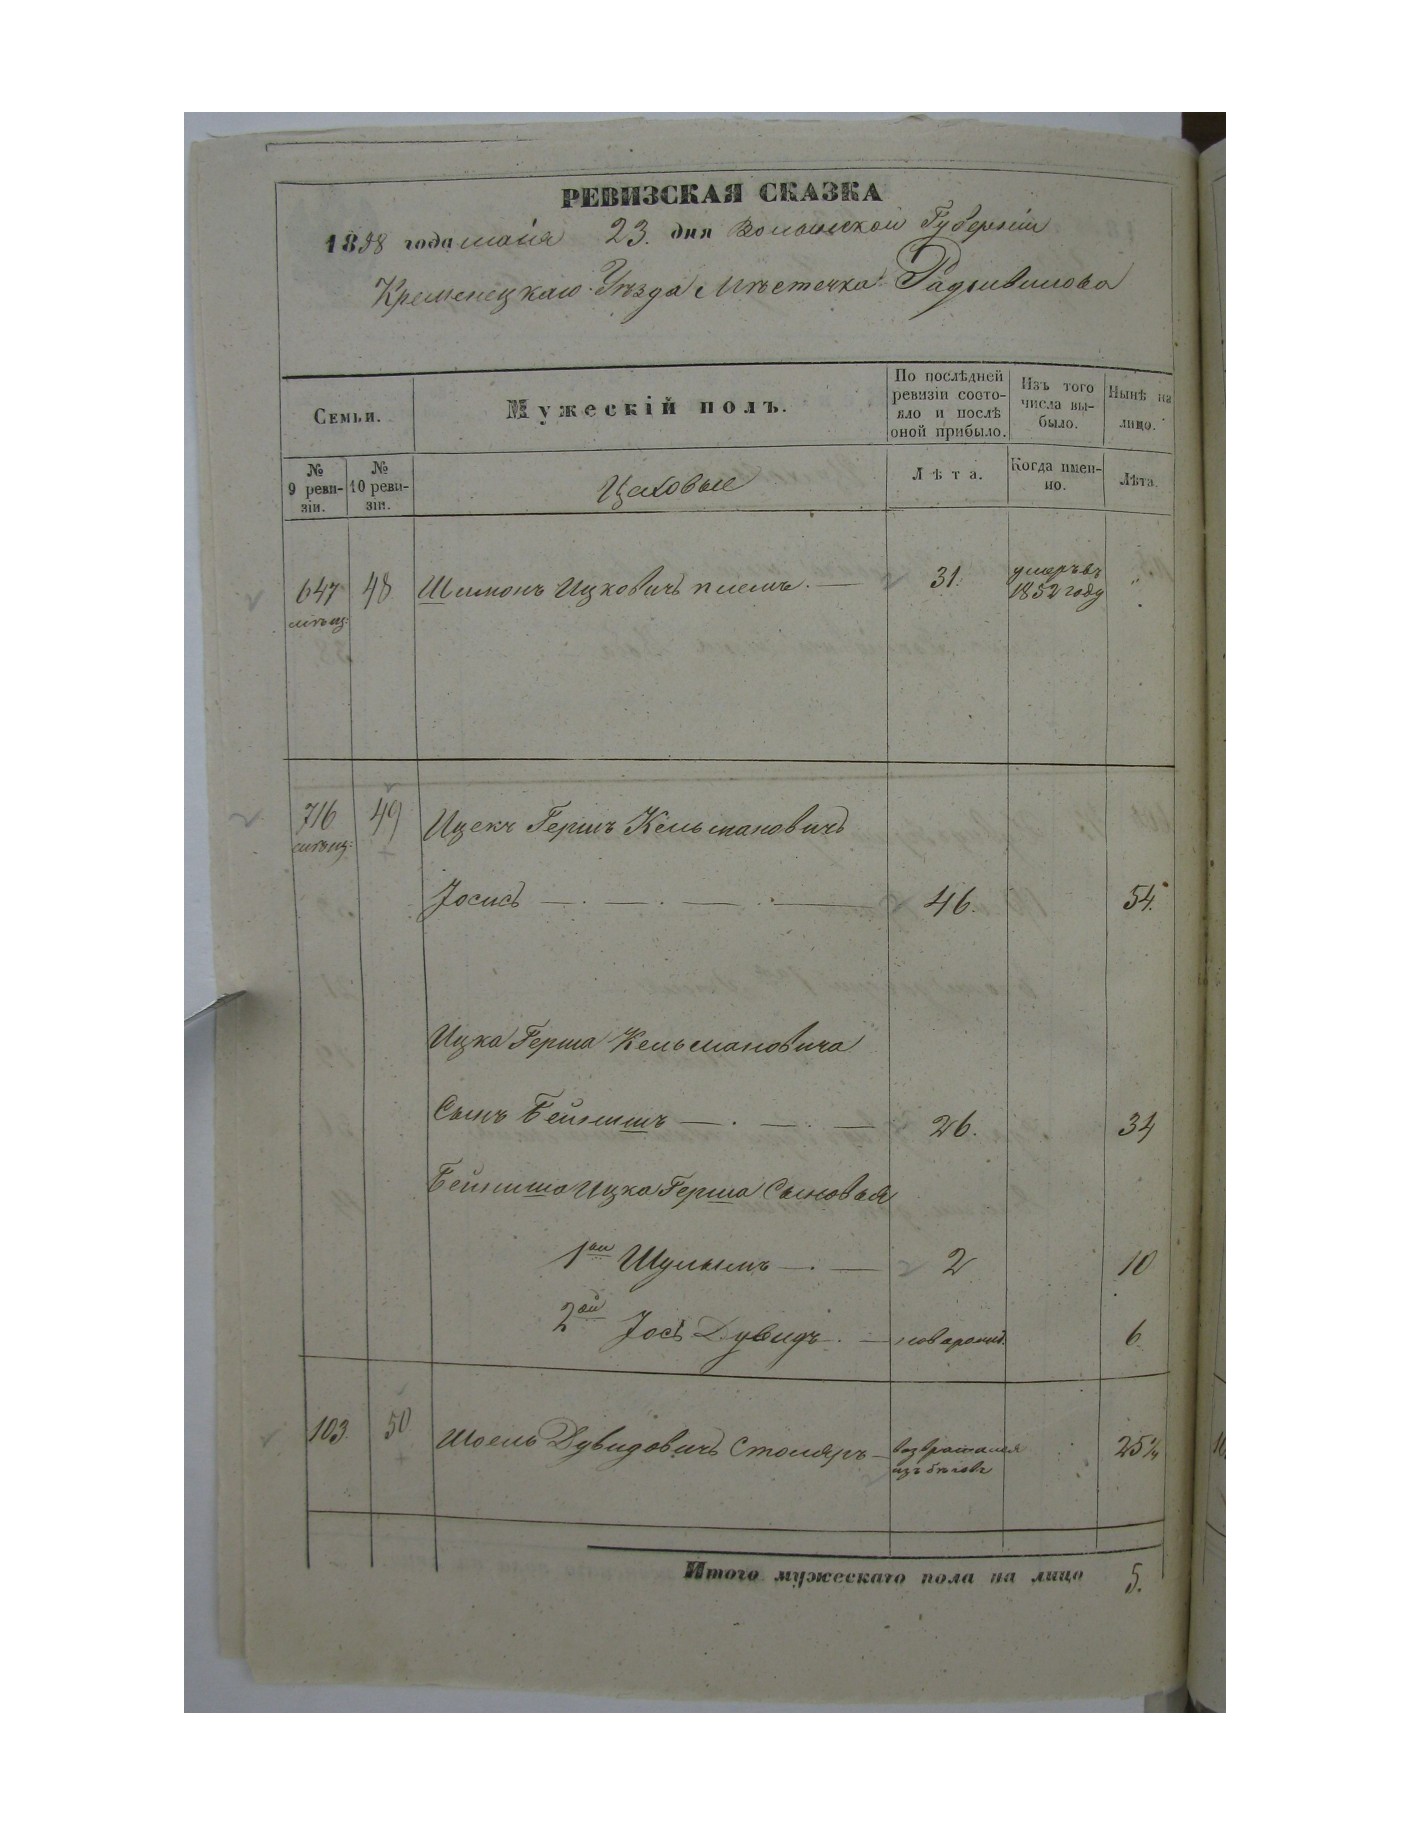 РЕВИЗСКАЯ СКАЗКА
1858 года маія 23. дня Волынской Губерніи
Кременецкаго Уѣзда Мѣстечка Радзивилова
Семьи.
Мужескій полъ.
По послѣдней ревизіи состояло и послѣ оной прибыло.
Изъ того числа выбыло.
Нынѣ на лицо.
№ 9 ревизіи.
№ 10 ревизіи.
Цеховые
Лѣта.
Когда именно.
Лѣта.
647 48 Шимонъ Ицковичъ 31. умеръ въ 1852 году "
мѣщ:
716 49 Ицекъ Гершъ Кельмановичъ
мѣщ:
Іосисъ 46. 54.
Ицка Герша Кельмановича
Сынъ Бейнишъ 26. 34
Бейниша Ицка Герша Сыновья
1ый Шулымъ 2 10
2ой Іось Дувидъ новорожд. 6
103. 50 Шоель Дувидовичъ Столяръ возвратился изъ бѣговъ 25 1/4
Итого мужескаго пола на лицо 5.